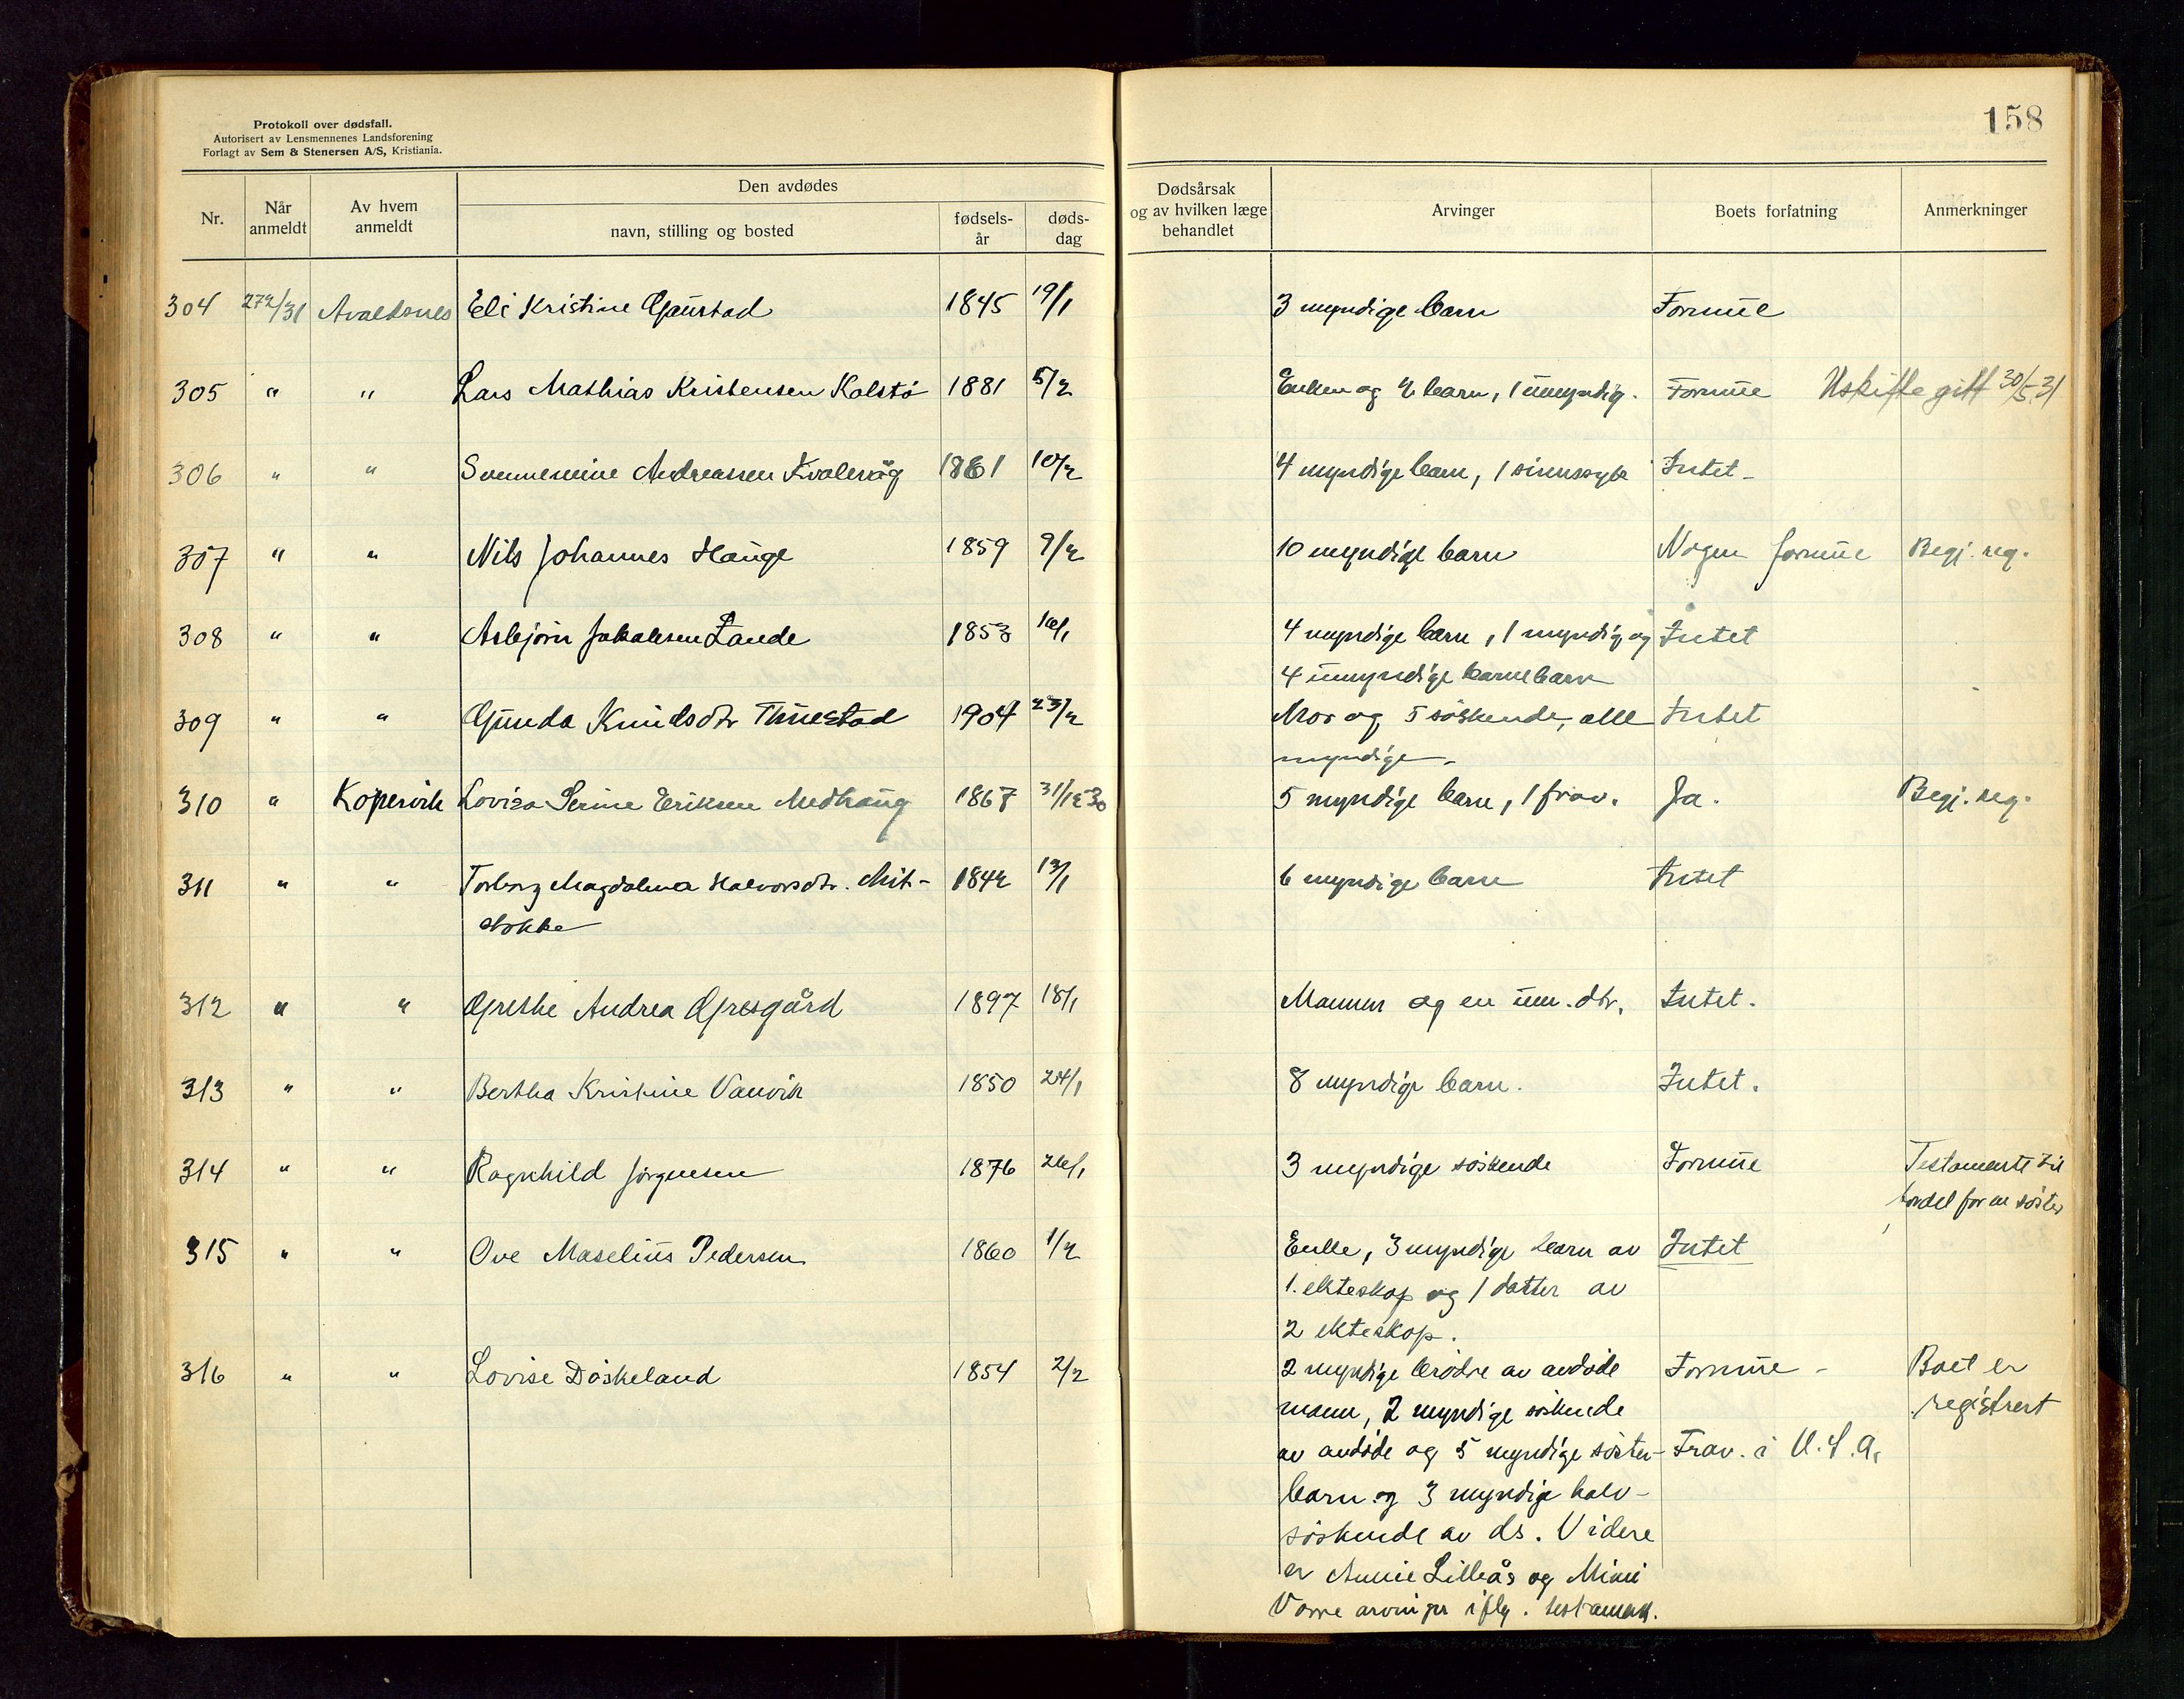 Protokoll over dødsfall.
Autorisert av Lensmennenes Landsforening
Forlagt av Sem & Stenersen A/S, Kristiania.
158
Nr.
Når anmeldt
Av hvem anmeldt
Den avdødes
navn, stilling og bosted
fødsels-år
døds-dag
Dødsårsak og av hvilken læge behandlet
Arvinger
Boets forfatning
Anmerkninger
304 27 2/31 Avaldsnes Eli Kristine Gaustad 1845 19/1 3 myndige barn Formue
305 " " Lars Mathias Kristensen Kolstø 1881 5/2 Enken og 2 barn, 1 umyndig. Formue Uskifte gitt 30/5 31
306 " " Andreassen Kvalevåg 1861 10/2 4 myndige barn, 1 sinnssyk Intet
307 " " Nils Johannes Hauge 1859 9/2 10 myndige barn Nogen formue Begj. reg.
308 " " Asbjørn Jakobsen Lande 1853 16/1 4 myndige barn, 1 myndig og Intet
4 umyndige barnebarn
309 " " Gunda Knudsdtr Thuestad 1904 23/2 Mor og 5 søskende, alle Intet
myndige.
310 " Kopervik Lovisa Serine Eriksen Medhaug 1867 31/12 30 5 myndige barn, 1 frav. Ja. Begj. reg.
311 " " Torborg Magdalena Halvorsdtr. Mit- 1842 13/1 6 myndige barn Intet
stokke
312 " " Grethe Andrea Gresgård 1897 18/1 Mannen og en um. dtr. Intet.
313 " " Bertha Kristine Vanvik 1850 24/1 8 myndige barn. Intet.
314 " " Ragnhild Jørgensen 1876 26/1 3 myndige søskende Formue Testamente til
fordel for en søster
315 " " Ove Maselius Pedersen 1860 1/2 Enke, 3 myndige barn av Intet
1. ekteskap og 1 datter av
2 ekteskap.
316 " " Lovise Døskeland 1854 2/2 2 myndige brødre av avdøde Formue - Boet er
mann, 2 myndige søskende registrert
av avdøde og 5 myndige søster- Frav. i U.S.A.
barn og 3 myndige halv-
søskende av ds. Videre
er Annie Lilleås og Mimi
Vorre arvinger iflg. testament.